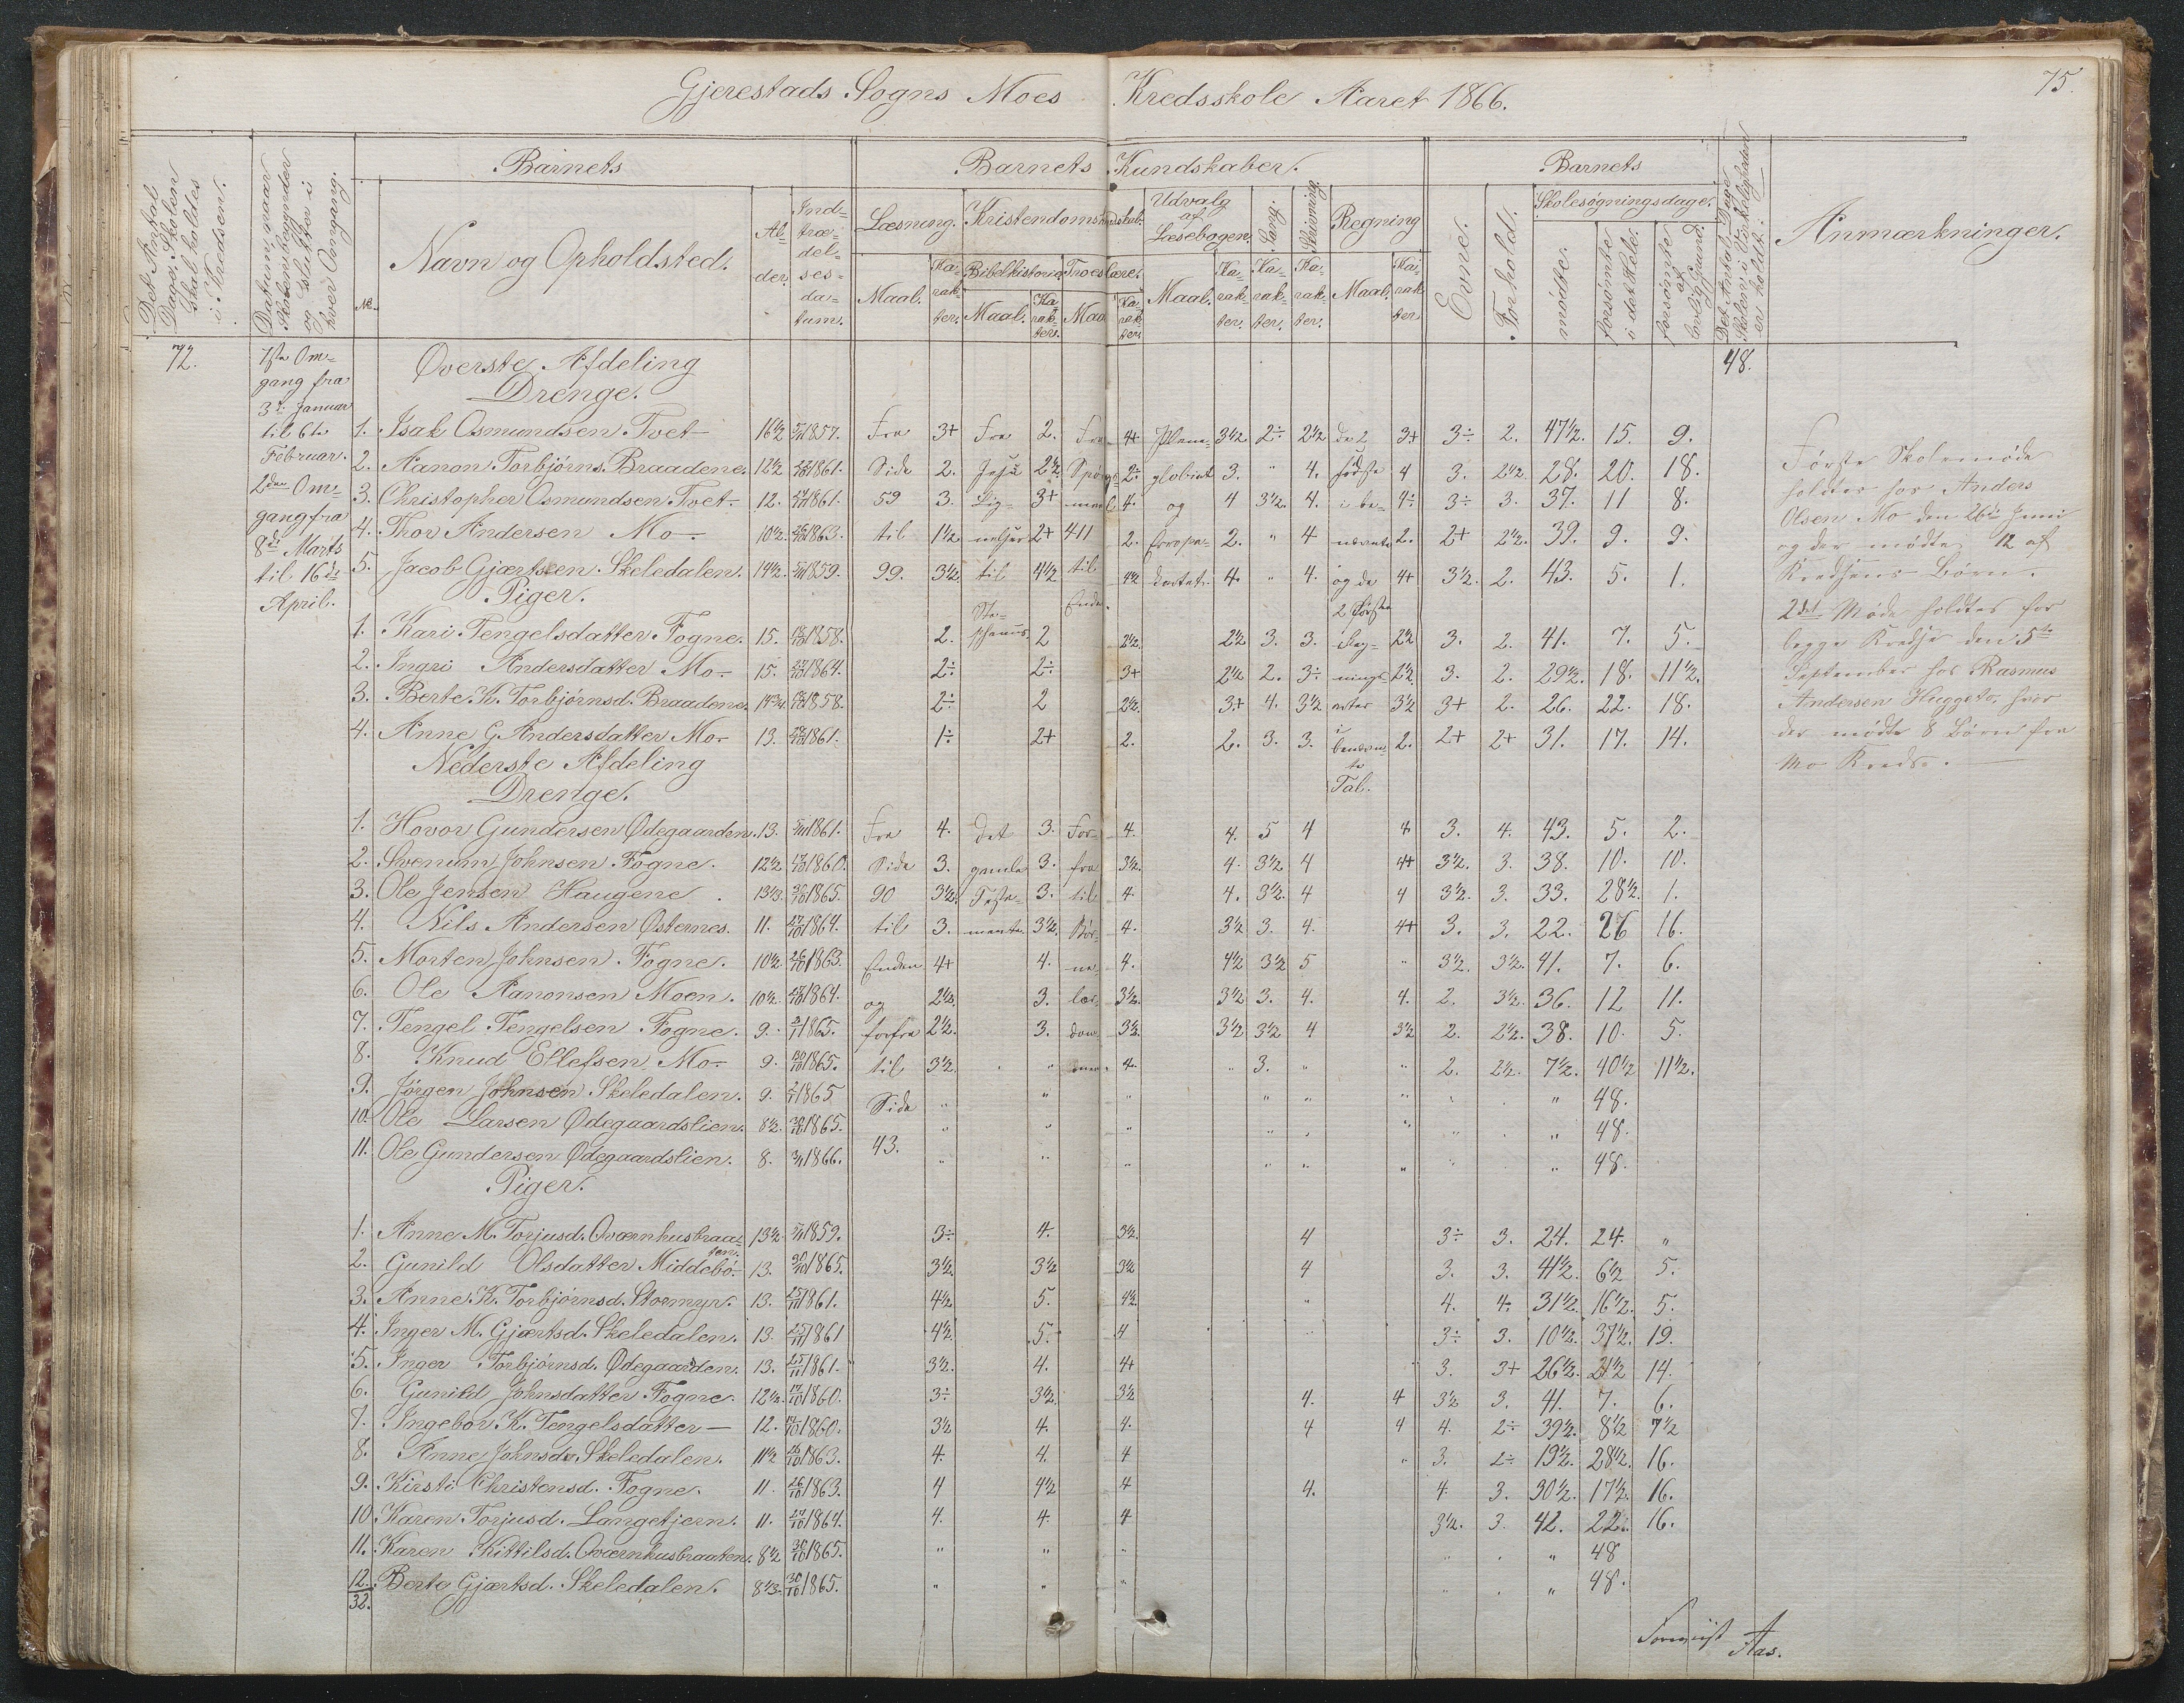 Gjerestads Sogns Moes Kredsskole Aaret 1866.
75.
Det Antal Dage Skolen skal holdes i Kredsen.
Datum, naar Skolen begynder og slutter i hver Omgang.
Barnets
No.
Navn og Opholdsted.
Alder.
Indtrædelsesdatum.
Barnets Kundskaber.
Læsning.
Maal.
Karakter.
Kristendomskundskab.
Bibelhistorie
Maal.
Karakter.
Troeslære.
Maal
Karakter.
Udvalg af Læsebogen.
Maal.
Karakter.
Sang.
Karakter.
Skrivning.
Karakter.
Regning
Maal.
Karakter
Barnets
Evne.
Forhold.
Skolesøgningsdage.
mødte.
forsømte i det Hele.
forsømte af lovlig Grund.
Det Antal Dage Skolen i Virkeligheden er holdt.
Anmærkninger.
72.
1ste Omgang fra 3die Januar til 6te Februar.
2den Omgang fra 8de Marts til 16de April.
48.
Øverste Afdeling
Drenge.
1. Isak Osmundsen Tvet 16½ 1857. Fra 3+ Fra 2. Fra 4+ Plane- 3½ 2÷ 2½ de 2 3+ 3÷ 2. 47½. 15. 9.
2. Aanon Torbjørns. Braadene. 12½ 1861. Side 2. Jesu 2½ Spørgs- 2÷ globiet 3. " 4. sidste 4 3. 2½ 28. 20. 18.
3. Christopher Osmundsen Tvet 12. 1861. 59 3. Lig- 3+ maal 4. og 4 3½. 4. i be- 4÷ 3÷ 3. 37. 11 8.
4. Thor Andersen Mo 10½. 1863. til 1½ nelser 2+ 411 2. Europa- 2. " 4 nævnte 2. 2+ 2½. 39. 9. 9.
5. Jacob Gjærtsen Skeledalen. 14½. 1859. 99. 3½ til 4½ til 4½ kortet. 4. " 4. og de 4+ 3½. 2. 43. 5. 1.
Piger.
Ste- Enden. 2 første
1. Kari Tengelsdatter Fogne. 15. 1858. 2. phanus 2 2½. 2½ 3. 3. i Reg- 2½ 3. 2. 41. 7. 5.
2. Ingri Andersdatter Mo 15. 1864. 2÷ 2÷ 3+ 2½ 2. 3÷ nings- 2½ 3. 2. 29½. 18. 11½.
3. Berte K. Torbjørnsd. Braadene. 14¾ 1858. 2÷ 2 2½. 3+ 4. 3½ arter 3½ 3+ 2. 26. 22. 18.
4. Anne G. Andersdatter Mo 13. 1861. 1÷ 2+ 2. 2. 3. 3. i benævnte Tal. 2. 2+ 2+ 31. 17. 14.
Nederste Afdeling
Drenge.
1. Hovor Gundersen Ødegaarden. 13. 1861. Fra 4. Det 3. For- 4. 4. 5 4 4 3. 4. 43. 5. 2.
2. Svenum Johnsen Fogne. 12½ 1860. Side 3. gamle 3. fra 3½. 4. 3½ 4 4+ 3½. 3. 38. 10. 10.
3. Ole Jensen Haugene. 13⅓. 1865. 90 3½. Testa- 3. til 4. 4. 3½. 4 4 3½. 3. 33. 28½. 1.
4. Nils Andersen Østernes. 11. 1864. til 3. mente. 3½. Bør- 4. 3½ 3. 4. 4+ 3. 3. 22. 26 16.
5. Morten Johnsen Fogne. 10½ 1863. Enden 4+ 4. ne- 4. 4½ 3½ 5 " 3½. 3½. 41. 7. 6.
6. Ole Aanonsen Moen. 10½. 1864. og 2½. 3. lær- 3½. 3½ 3. 4. 4. 2. 3½. 36. 12 11.
7. Tengel Tengelsen Fogne. 9. 1865. forfra 2½. 3. dom- 3½ 3½ 3½ 4 3½ 2. 2½. 38. 10. 5.
8. Knud Ellefsen Mo 9. 1865. til 3½. " men. 4. " 3. " " 2. 2½. 7½. 40½ 11½.
9. Jørgen Johnsen Skeledalen. 9. 1865 Side " " " " " " " 48.
10. Ole Larsen Ødegaardslien. 8½. 1865. " " " " " " " 48.
11. Ole Gundersen Ødegaardslien. 8. 1866. 43. " " " " " " " 48.
Piger.
1. Anne M. Torjusd. Qværnhusbraaten. 13½ 1859. 3÷ 4. 3½. 4 3÷ 3. 24. 24. "
2. Gunild Olsdatter Middebø 13. 1865. 3½. 3½ 3½ 4 3. 3. 41½. 6½ 5.
3. Anne K. Torbjørnsd. Stormyr. 13. 1861. 4½. 5. 4½. " 4. 4. 31½. 16½. 5.
4. Inger M. Gjærtsd. Skeledalen. 13. 1861 4½ 5. 4 3÷ 3. 10½. 37½. 19.
5. Inger Torbjørnsd. Ødegaarden. 13. 1861. 3½. 4. 4+ 3. 3+ 26½. 21½ 14.
6. Gunild Johnsdatter Fogne. 12½. 1860. 3÷ 3½. 3½ 4. 4 3½ 3. 41. 7. 6.
7. Ingebor K. Tengelsdatter — 12. 1860. 3½ 4. 4. 4 4 4. 2÷ 39½. 8½ 7½
8. Anne Johnsd. Skeledalen. 11½ 1863. 4. 4. 4 " 3. 2÷ 19½. 28½. 16.
9. Kirsti Christensd. Fogne. 11. 1863. 4 4½ 4 4. 4. 3. 30½. 17½. 16.
10. Karen Torjusd. Langetjern. 11. 1864. 4. 4. 4 3½. 3. 42. 22. 16.
11. Karen Kittilsd. Qværnhusbraaten. 8½ 1865. " " " " " 48
12. Berte Gjærtsd. Skeledalen. 8⅓. 1865. " " " " " 48.
32.
Første Skolemøde
holdtes hos Anders
Olsen Mo den 26de Juni
og der mødte 12 af
Kredsens Børn.
2det Møde holdtes for
begge Kredse den 5te
September hos Rasmus
Andersen Huggeto, hvor
der mødte 8 Børn fra
Mo Kreds.
Aas.